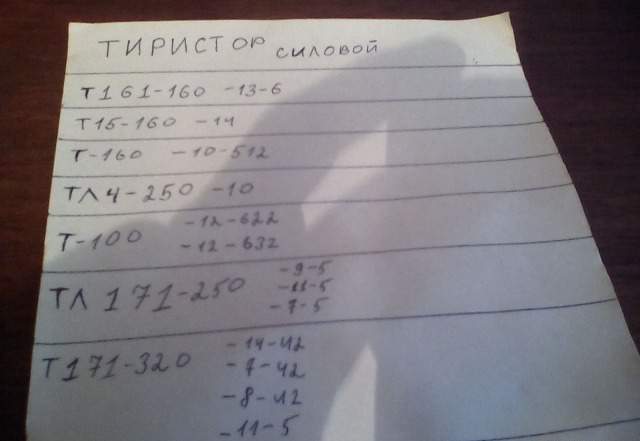 ТИРИСТОР силовой
Т161-160 -13-6
Т15-160 -14
Т-160 -10-512
ТЛ4-250 -10
-12-622
Т-100
-12-632
-9-5
ТЛ 171-250 -11-5
-7-5
-14-42
Т171-320 -7-42
-8-42
-11-5